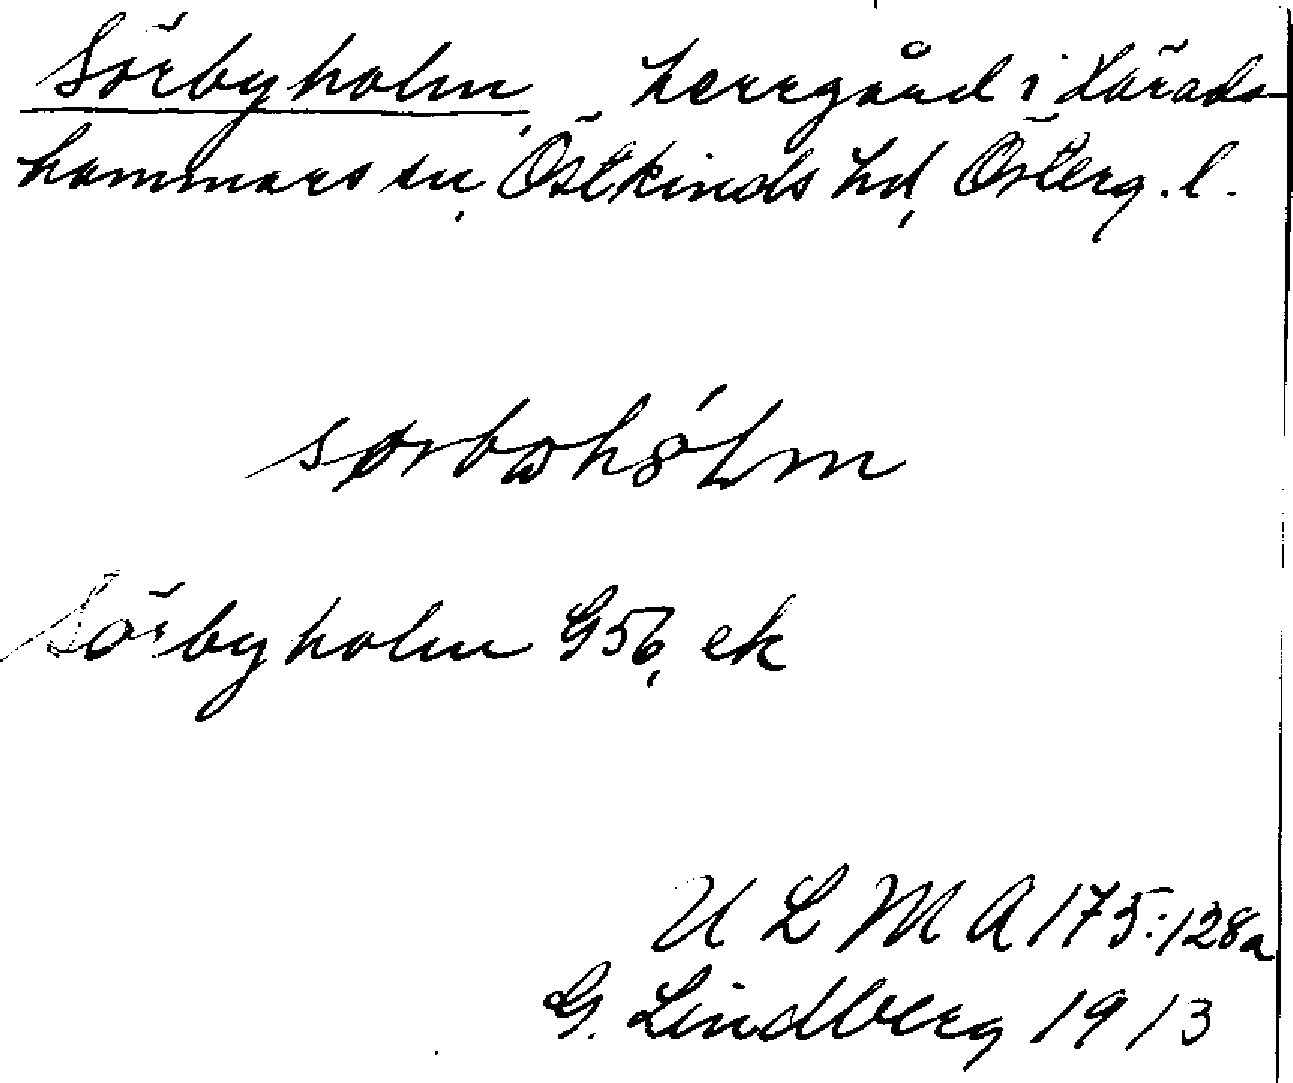 Sörbyholm, herrgård i Häradshammars sn, Östkinds hd, Österg. l.
Sörbyholm G56, ek
U L M A 175:128a
G. Lindberg 1913